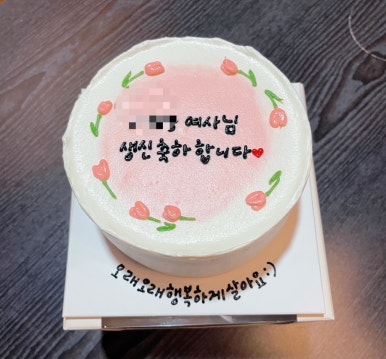 여사님
생신 축하합니다♥
오래오래행복하게살아요:)